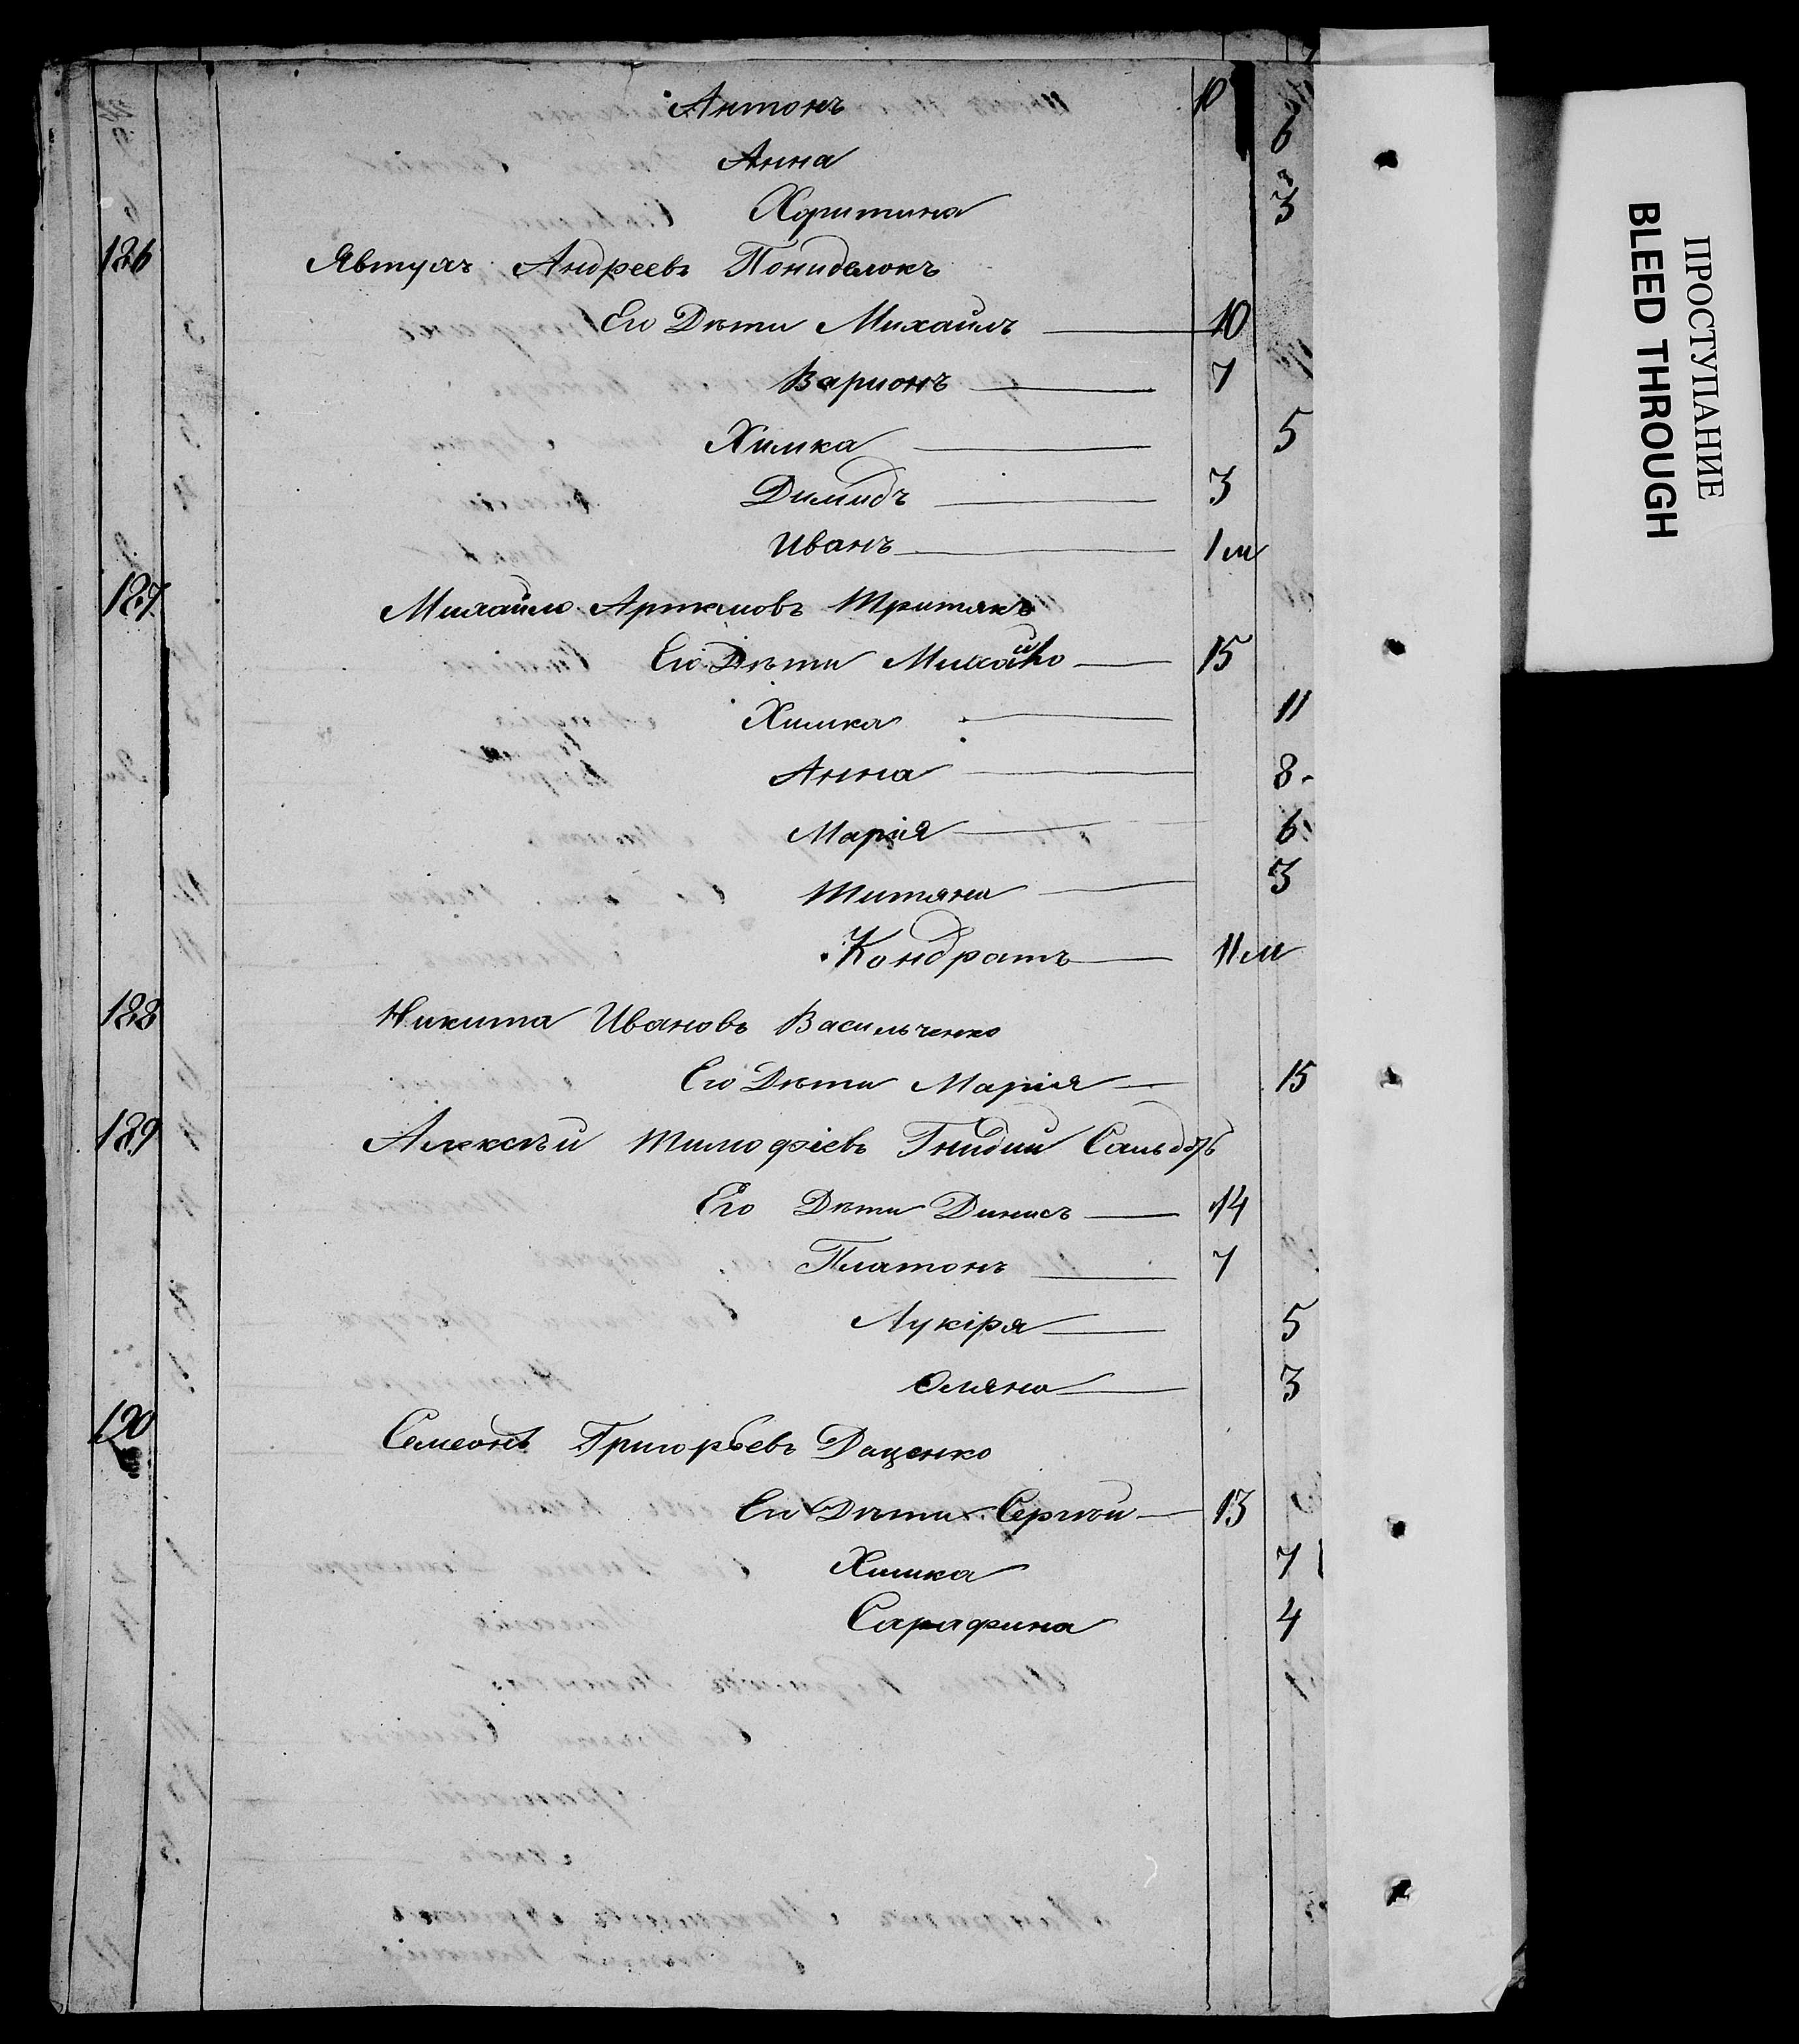 Антонъ 10
Анна 6
Харитина 3
126 Явтухъ Андреевъ Понидѣлокъ
Его Дѣти Михаилъ 10
Варионъ 7
Химка 5
Димидъ 3
Иванъ 1 м
127 Михайло Артемовъ Тритякъ
Его Дѣти Михайло 15
Химка 11
Анна 8
Марія 6
Титяна 3
Кондратъ 11 м
128 Никита Ивановъ Васильченко
Его Дѣти Марія 15
129 Алексѣй Тимофіевъ Гнидии
Его Дѣти Динисъ 14
Платонъ 7
Лукіря 5
Омяна 3
Семеонъ Григорьевъ Даценко
Его Дѣти Сергѣй 13
Химка 7
Сарафина 4
ПРОСТУПАНИЕ
BLEED THROUGH